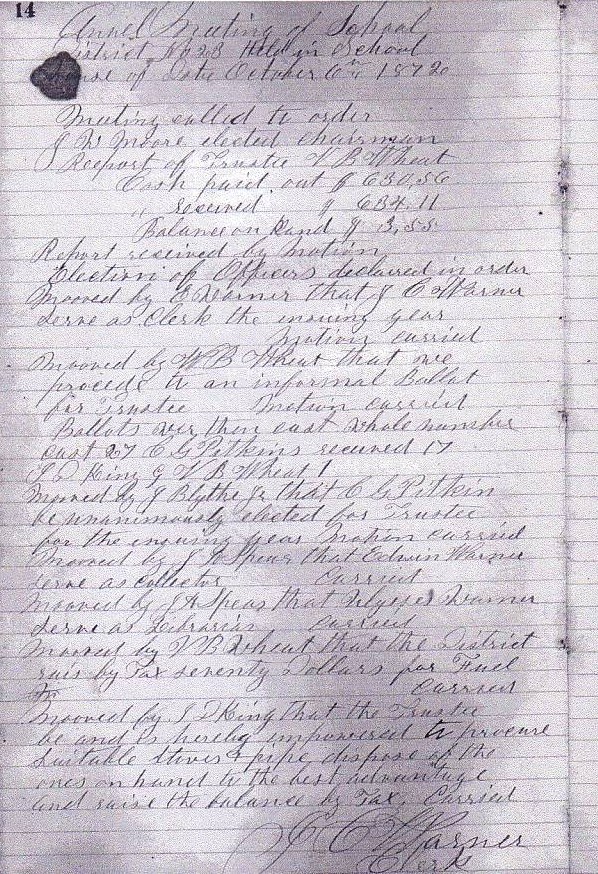 14
Annel Meeting of School
District No 28 Held in School
House of Date October 1872
Meeting called to order
J W Moore elected chairman
Report of Trustee V B Wheat
Cash paid out $ 630,56
" received $ 634.11
Balance on Hand $ 3,55
Report received by motion
Election of Officers declaired in order
Mooved by E Warner that J C Warner
serve as Clerk the ensuing year
Motion carried
Mooved by V B Wheat that we
procede to an informal Ballot
for Trustee Motion carried
Ballots wer then cast whole number
cast 27 C G Pitkins received 17
J D King 9 V B Wheat 1
Mooved by J Blythe Jr that C G Pitkin
be unanimously elected for Trustee
for the ensuing year Motion carried
Mooved by J A Spears that Edwin Warner
serve as collector Carried
Mooved by J A Spears that Ulysses Warner
serve as Librarian carried
Mooved by V B Wheat that the District
rais by Tax seventy Dollars for Fuel
Carried
Mooved by J D King that the Trustee
be and is hereby impowered to procure
suitable stoves & pipe dispose of the
ones on hand to the best advantage
and raise the balance by Tax, Carried
J C Warner
Clerk